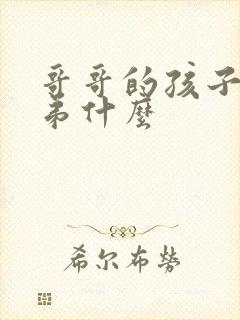 哥哥的孩子
弟什麼
希尔布勞